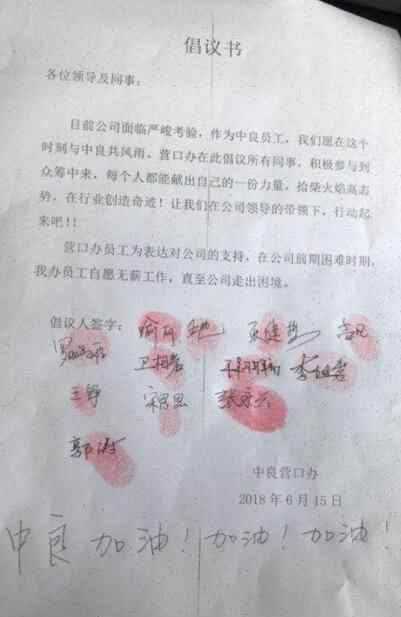 倡议书
各位领导及同事：
目前公司面临严峻考验，作为中良员工，我们愿在这个
时刻与中良共风雨。营口办在此倡议所有同事，积极参与到
众筹中来，每个人都能献出自己的一份力量，拾柴火焰高志
势，在行业创造奇迹！让我们在公司领导的带领下，行动起
来吧!!
营口办员工为表达对公司的支持，在公司前期困难时期，
我办员工自愿无薪工作，直至公司走出困境。
倡议人签字：
王铮 宋思思
郭涛
中良营口办
2018 年 6 月 15 日
中良 加油！加油！加油！